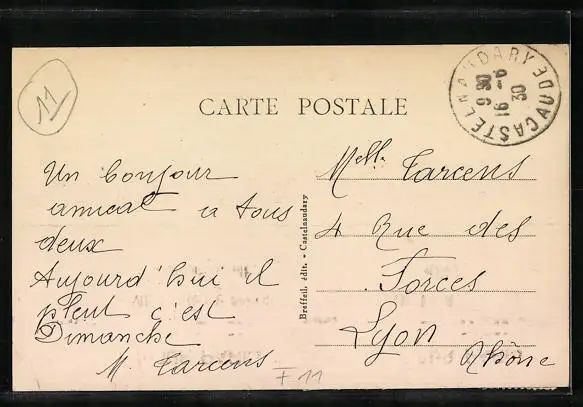 11
CARTE POSTALE
CASTELNAUDARY AUDE
9 30
16 - 9
30
Un bonjour
amical a tous
deux
Aujourd'hui il
pleut c'est
Dimanche
M. Tarcens
Breffeil, édit. - Castelnaudary
Melle. Tarcens
4 Rue des
Forces
Lyon
Rhône
F 11